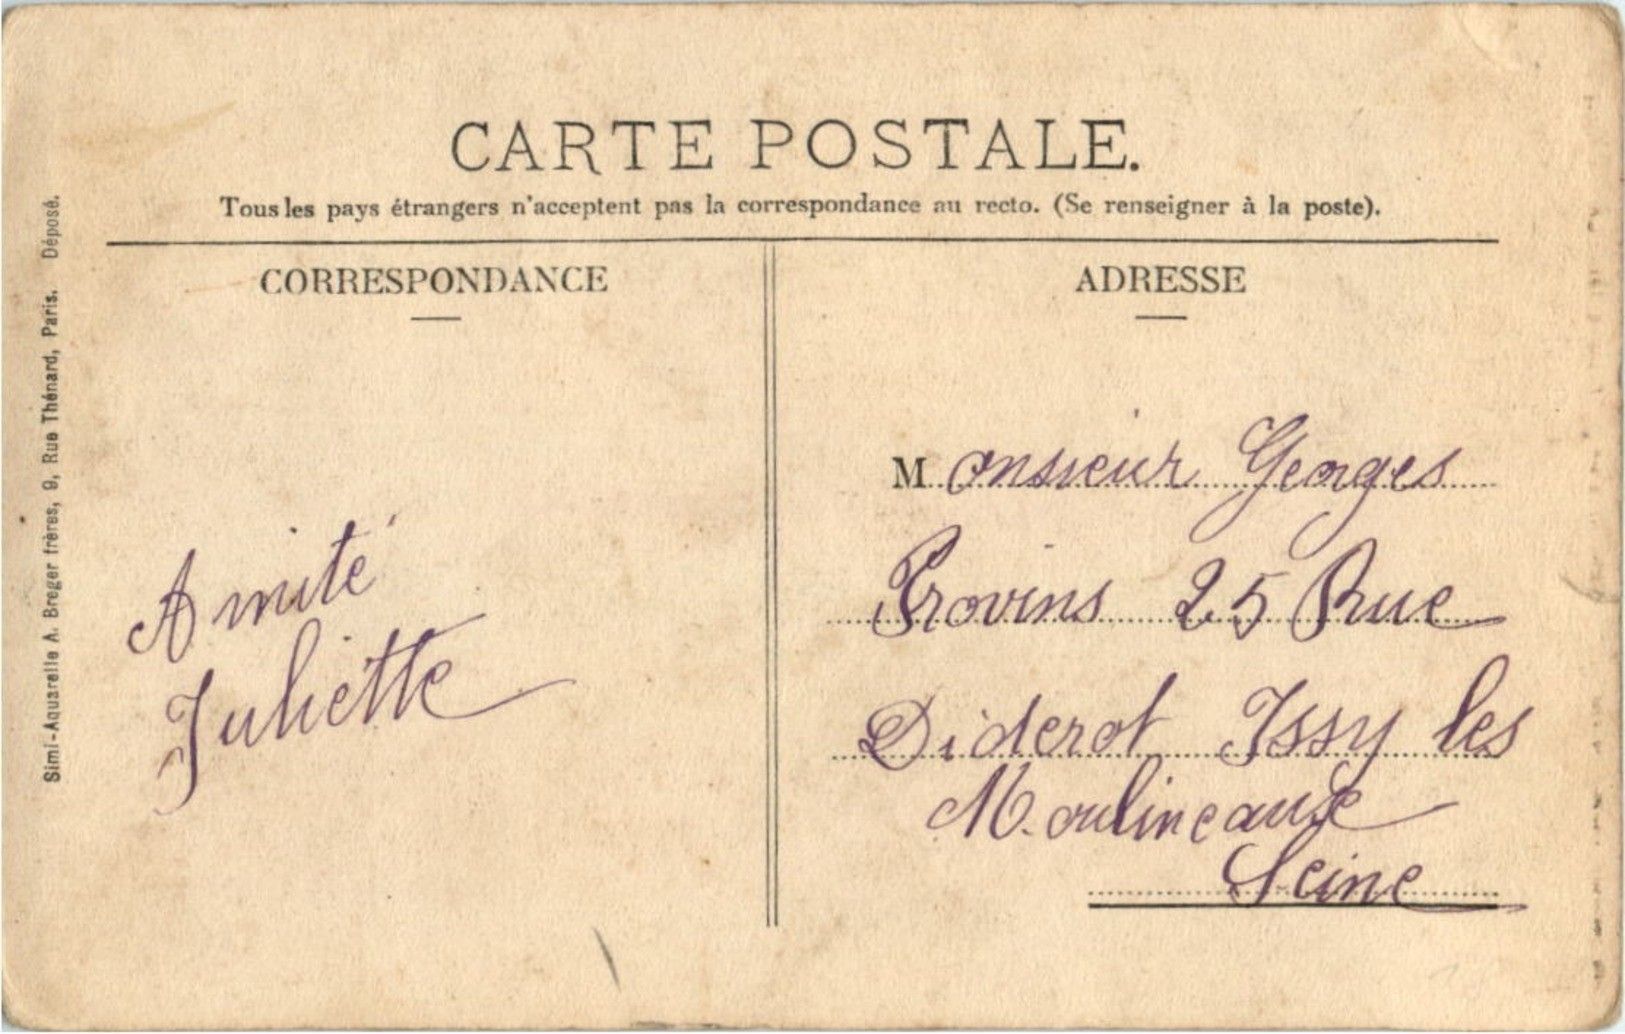 CARTE POSTALE.
Tous les pays étrangers n'acceptent pas la correspondance au recto. (Se renseigner à la poste).
CORRESPONDANCE
Amitié
Juliette
ADRESSE
Monsieur Georges
Provins 25 Rue
Diderot Issy les
Moulineaux
Seine
Simi-Aquarelle A. Breger frères, 9, Rue Thénard, Paris. Déposé.